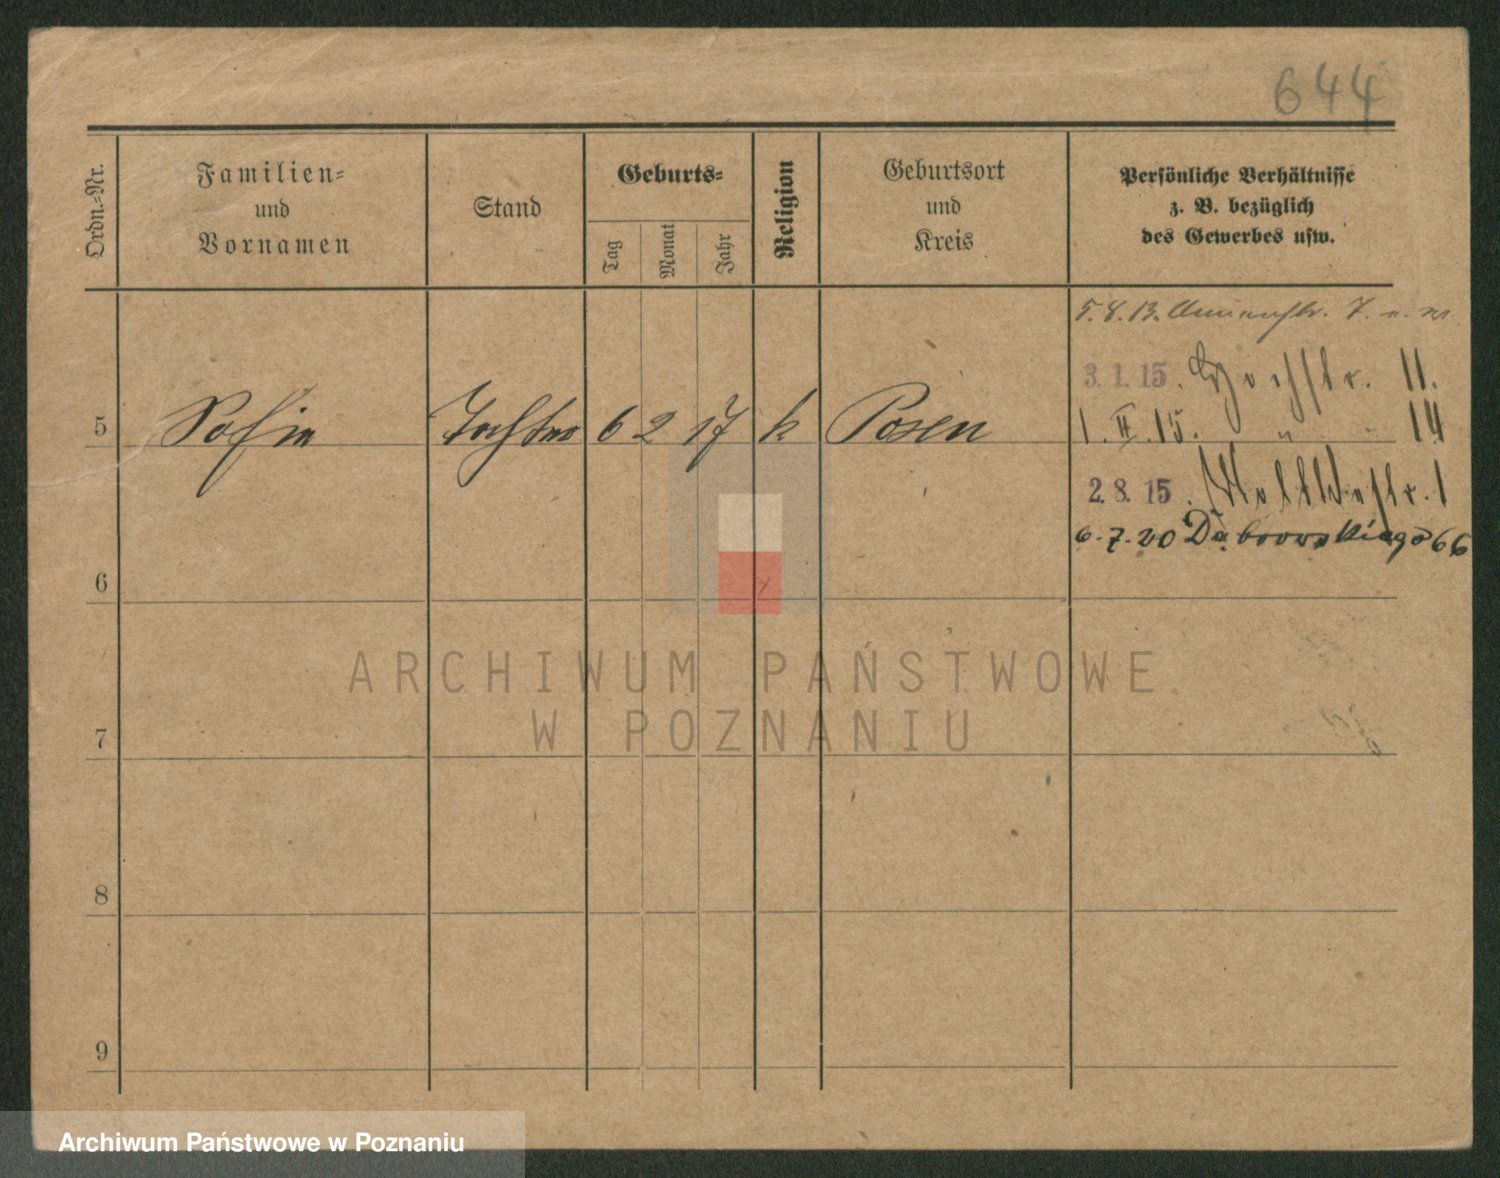 644
Ordn.-Nr.
Familien-
und
Vornamen
Stand
Geburts-
Tag
Monat
Jahr
Religion
Geburtsort
und
Kreis
Persönliche Verhältnisse
z. B. bezüglich
des Gewerbes usw.
5.8.13. 7.
3.1.15. Hochstr. 11.
5 Sofie Tochter 6 2 17 k Posen 1.II.15. " " 14
2.8.15. 1
6.7.20 Dąbrowskiego 66
6
7
8
9
ARCHIWUM PAŃSTWOWE
W POZNANIU
Archiwum Państwowe w Poznaniu